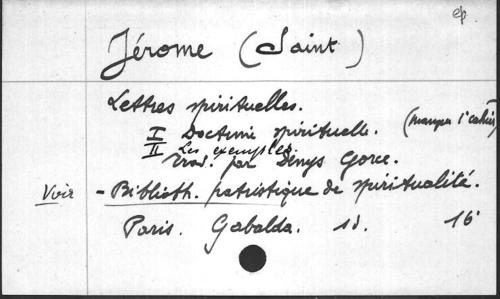 ep.
Jérome (Saint)
Lettres spirituelles.
I Doctrine spirituelle. (manque 1er cahier)
II Les exemples.
Trad. par Denys Gorce.
Voir - Biblioth. patristique de spiritualité.
Paris. Gabalda. sd. 16°